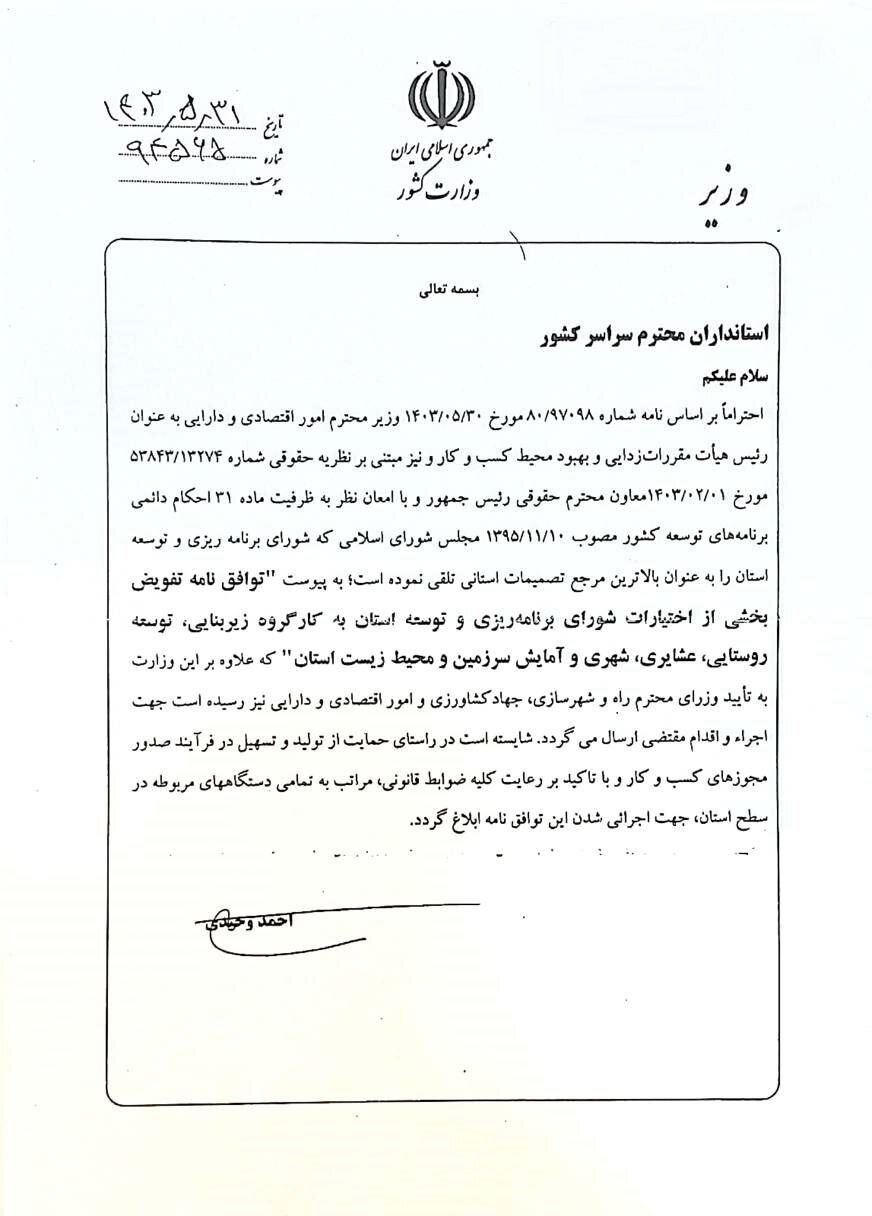 جمهوری اسلامی ایران
وزارت کشور
وزیر
تاریخ ۱۴۰۳/۵/۳۱
شماره ۹۴۵۶۵
پیوست
بسمه تعالی
استانداران محترم سراسر کشور
سلام علیکم
احتراماً بر اساس نامه شماره ۸۰/۹۷۰۹۸ مورخ ۱۴۰۳/۰۵/۳۰ وزیر محترم امور اقتصادی و دارایی به عنوان
رئیس هیأت مقررات‌زدایی و بهبود محیط کسب و کار و نیز مبتنی بر نظریه حقوقی شماره ۵۳۸۴۳/۱۳۲۷۴
مورخ ۱۴۰۳/۰۲/۰۱معاون محترم حقوقی رئیس جمهور و با امعان نظر به ظرفیت ماده ۳۱ احکام دائمی
برنامه‌های توسعه کشور مصوب ۱۳۹۵/۱۱/۱۰ مجلس شورای اسلامی که شورای برنامه ریزی و توسعه
استان را به عنوان بالاترین مرجع تصمیمات استانی تلقی نموده است؛ به پیوست "توافق نامه تفویض
بخشی از اختیارات شورای برنامه‌ریزی و توسعه استان به کارگروه زیربنایی، توسعه
روستایی، عشایری، شهری و آمایش سرزمین و محیط زیست استان" که علاوه بر این وزارت
به تأیید وزرای محترم راه و شهرسازی، جهادکشاورزی و امور اقتصادی و دارایی نیز رسیده است جهت
اجراء و اقدام مقتضی ارسال می گردد. شایسته است در راستای حمایت از تولید و تسهیل در فرآیند صدور
مجوزهای کسب و کار و با تاکید بر رعایت کلیه ضوابط قانونی، مراتب به تمامی دستگاههای مربوطه در
سطح استان، جهت اجرائی شدن این توافق نامه ابلاغ گردد.
احمد وحیدی